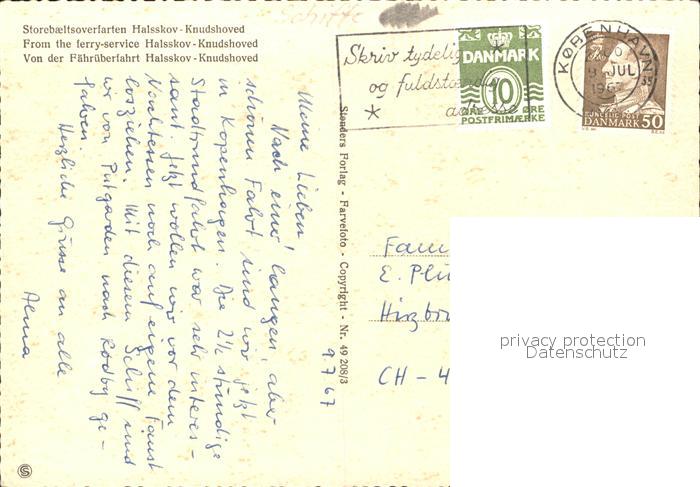 Schiffe
Storebæltsoverfarten Halsskov-Knudshoved
From the ferry-service Halsskov-Knudshoved
Von der Fährüberfahrt Halsskov-Knudshoved
Skriv tydelig
og fuldstæ
* ad
DANMARK
10
ØRE ØRE
POSTFRIMÆRKE
KØBENHAVN
JUL
DANMARK 50
9.7.67
Meine Lieben
Nach einer langen, aber
schönen Fahrt sind wir jetzt
in Kopenhagen. Die 2½ stündige
Stadtrundfahrt war sehr interes-
sant. Jetzt wollen wir vor dem
Nachtessen noch auf eigene Faust
losziehen. Mit diesem Schiff sind
wir von Putgarden nach Rödby ge-
fahren.
Herzliche Grüsse an alle
Alma
Stenders Forlag - Farvefoto - Copyright - Nr. 49 208/3
Fam
E. Plü
Hirzbr
CH - 4
privacy protection
Datenschutz